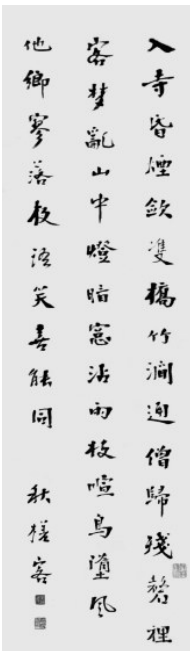 入寺昏煙歛雙橋竹澗通僧歸殘磬裡
客梦亂山中燈暗窓沾雨枝喧鳥墮風
他鄉寥落校語笑喜能同　秋槎客